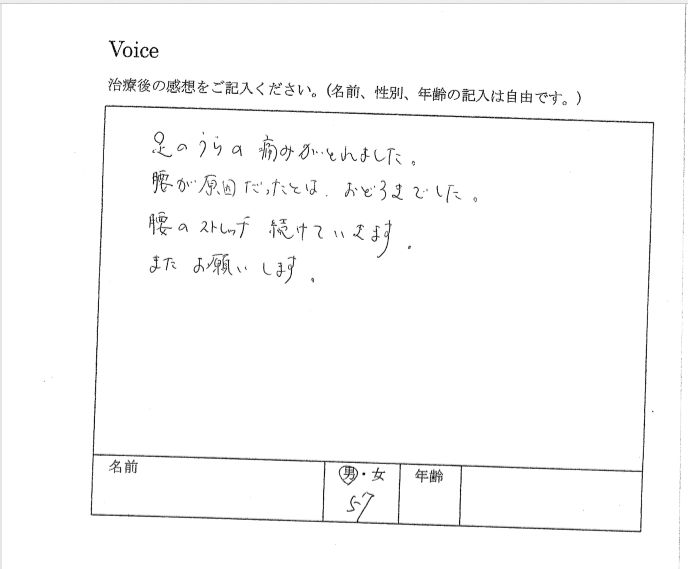 Voice
治療後の感想をご記入ください。(名前、性別、年齢の記入は自由です。)
足のうらの 痛みがとれました。
腰が原因だったとは、おどろきでした。
腰のストレッチ 続けていきます。
また お願いします。
名前 男・女 年齢
57